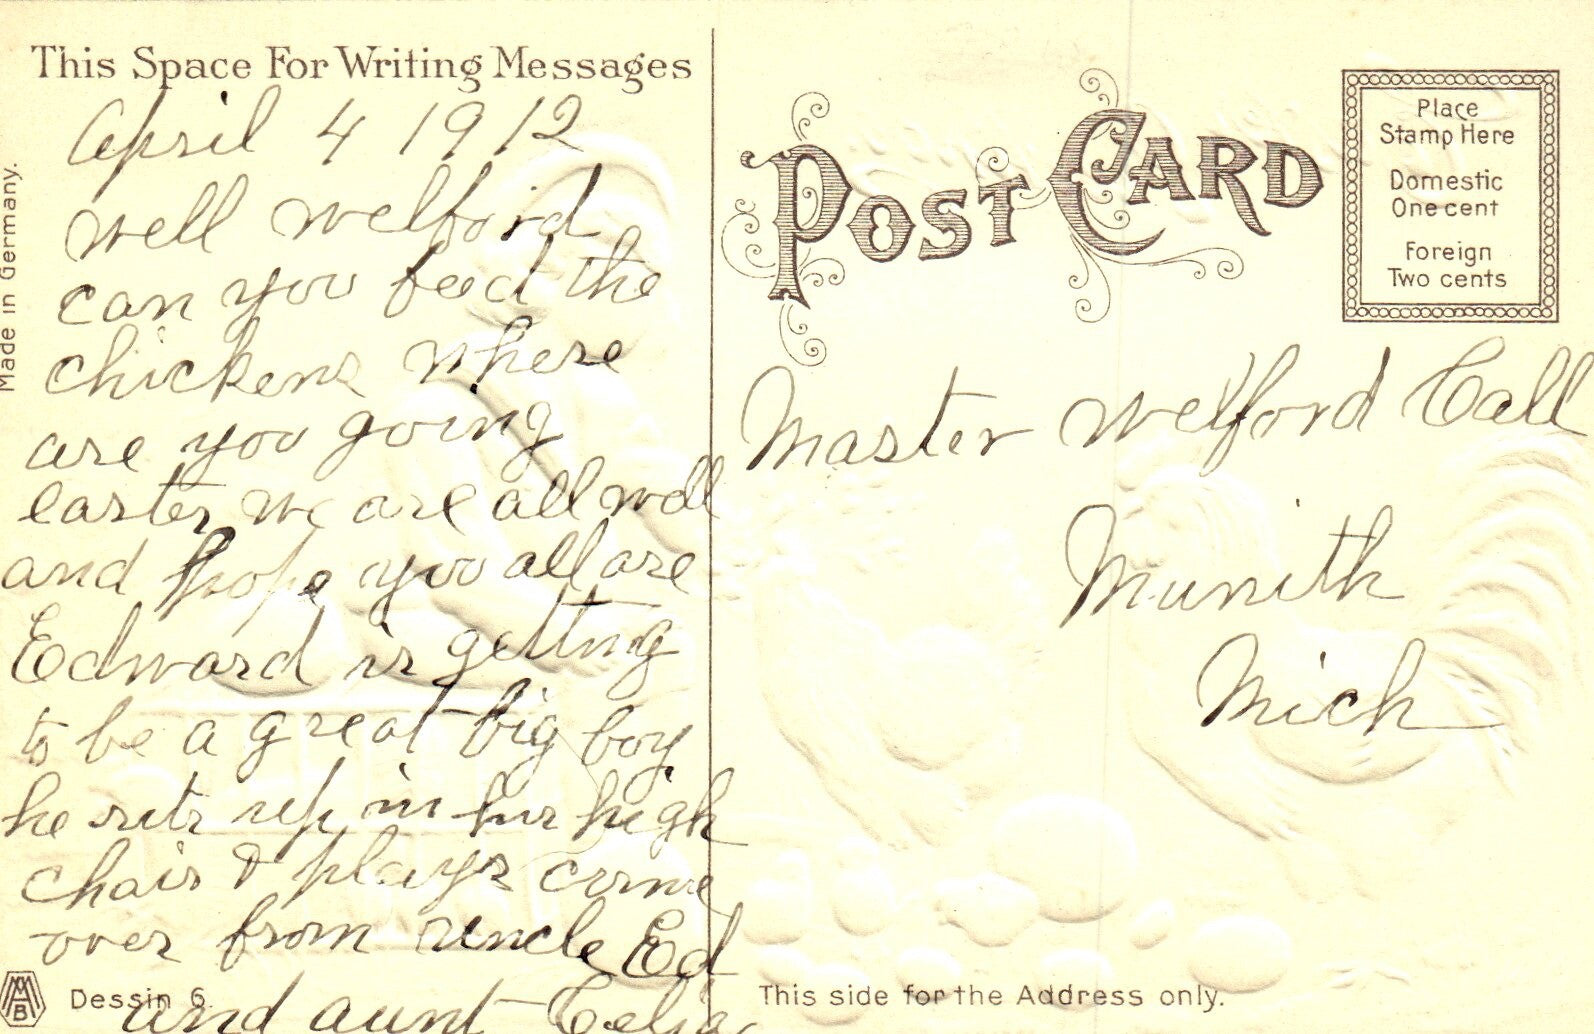 This Space For Writing Messages
April 4 1912
well welford
can you feed the
chickens where
are you going
easter we are all well
and hope you all are
Edward is getting
to be a great big boy
he sits up in his high
chair & plays come
over from uncle Ed
and aunt Celia
Made in Germany.
MAB
Dessin 6.
POST CARD
Place
Stamp Here
Domestic
One cent
Foreign
Two cents
Master Welford Call
Munith
Mich
This side for the Address only.